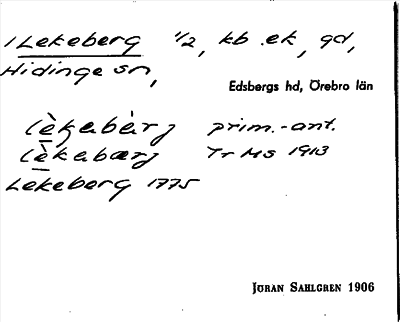 1 Lekeberg 1/2, kb .ek, gd,
Hidinge sn,
Edsbergs hd, Örebro län
lèkabàrj prim.-ant.
lèkabærj Tr Ms 1913
Lekeberg 1775
JÖRAN SAHLGREN 1906